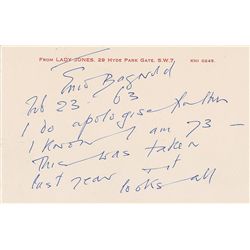 FROM LADY JONES, 29 HYDE PARK GATE, S.W.7. KNI 0245.
Enid Bagnold
Feb 23. 63
I do apologise
I know I am 73 —
This was taken
last year — it
looks all